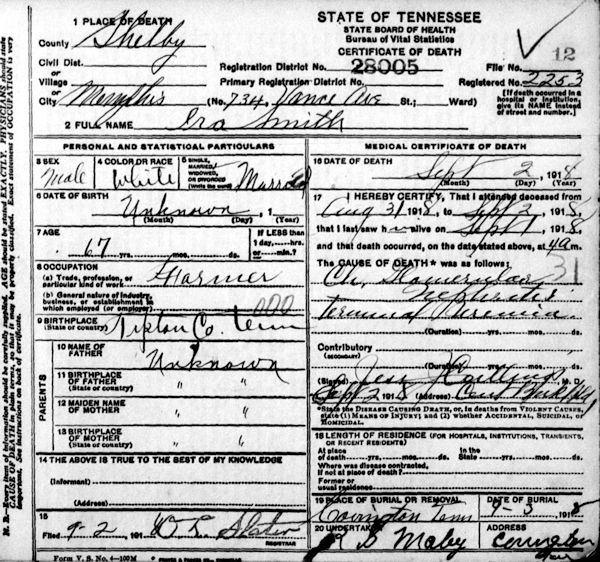 STATE OF TENNESSEE
STATE BOARD OF HEALTH
Bureau of Vital Statistics
CERTIFICATE OF DEATH
1 PLACE OF DEATH
County Shelby
Civil Dist.
or
Village
or
City Memphis
Registration District No. 28005 File No. 12
Primary Registration District No. Registered No. 2253
(No. 734 Vance Ave St.; Ward)
[If death occurred in a hospital or institution, give its NAME instead of street and number.]
2 FULL NAME Ira Smith
PERSONAL AND STATISTICAL PARTICULARS
3 SEX Male
4 COLOR OR RACE White
5 SINGLE, MARRIED, WIDOWED, OR DIVORCED (Write the word) Married
6 DATE OF BIRTH
Unknown, 1
(Month) (Day) (Year)
7 AGE
67 yrs. mos. ds.
If LESS than 1 day,....hrs. or....min.?
8 OCCUPATION
(a) Trade, profession, or particular kind of work Farmer
(b) General nature of industry, business, or establishment in which employed (or employer)
000
9 BIRTHPLACE
(State or country) Tipton Co. Tenn
PARENTS
10 NAME OF FATHER Unknown
11 BIRTHPLACE OF FATHER (State or country) " "
12 MAIDEN NAME OF MOTHER " "
13 BIRTHPLACE OF MOTHER (State or country) " "
14 THE ABOVE IS TRUE TO THE BEST OF MY KNOWLEDGE
(Informant)
(Address)
15
Filed 9-2, 191
REGISTRAR
Form V. S. No. 4—100M
MEDICAL CERTIFICATE OF DEATH
16 DATE OF DEATH
Sept 2, 1918
(Month) (Day) (Year)
17 I HEREBY CERTIFY, That I attended deceased from
Aug 31 1918, to Sept 2, 1918,
that I last saw h alive on Sept 1, 1918,
and that death occurred, on the date stated above, at 4 a m.
The CAUSE OF DEATH * was as follows:
31
Ch.
Nephritis
(Duration) yrs. mos. ds.
Contributory
(SECONDARY)
(Duration) yrs. mos. ds.
(Signed) M. D.
Sept 2 1918 (Address)
*State the DISEASE CAUSING DEATH, or, in deaths from VIOLENT CAUSES, state (1) MEANS OF INJURY; and (2) whether ACCIDENTAL, SUICIDAL, or HOMICIDAL.
18 LENGTH OF RESIDENCE (FOR HOSPITALS, INSTITUTIONS, TRANSIENTS, OR RECENT RESIDENTS)
At place of death yrs. mos. ds. In the State yrs. mos. ds.
Where was disease contracted, if not at place of death?
Former or usual residence
19 PLACE OF BURIAL OR REMOVAL Covington Tenn
DATE OF BURIAL 9-3, 1918
20 UNDERTAKER Maley
ADDRESS Covington
Tenn
N. B.—Every item of information should be carefully supplied. AGE should be stated EXACTLY. PHYSICIANS should state
CAUSE OF DEATH in plain terms, so that it may be properly classified. Exact statement of OCCUPATION is very
important. See instructions on back of certificate.